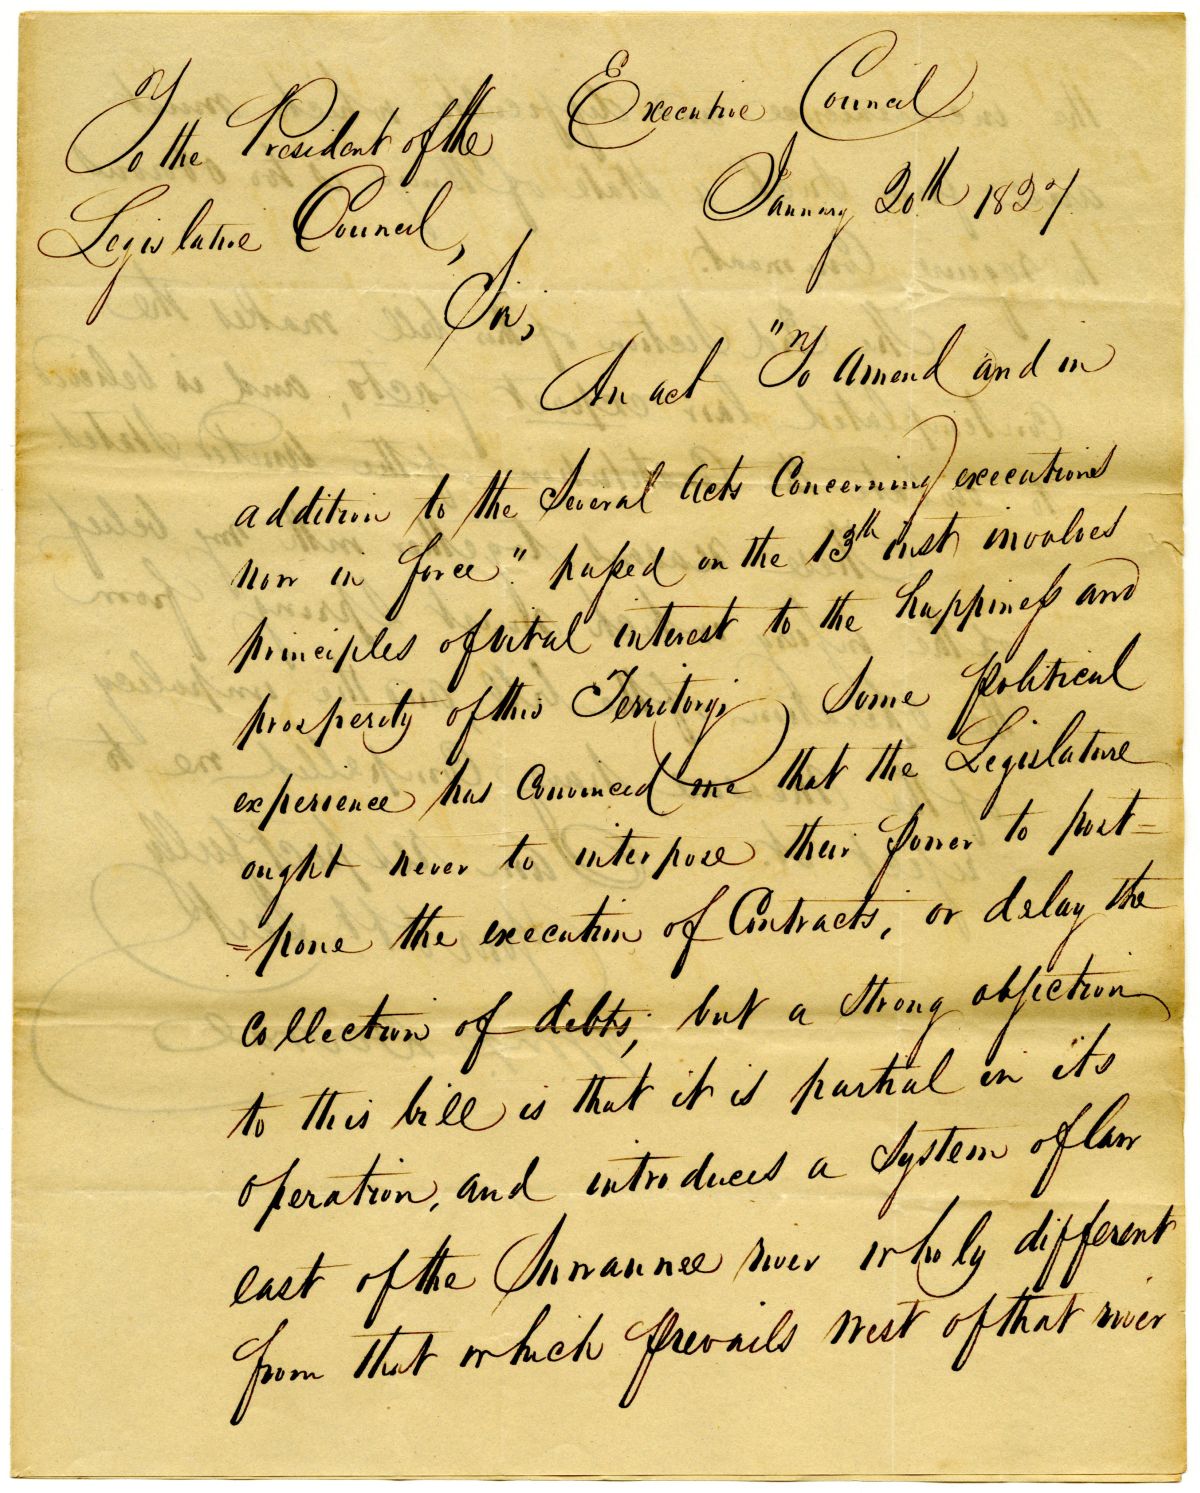 Executive Council
January 20th 1827.
To the President of the
Legislative Council,
Sir,
An act "To amend and in
addition to the Several acts Concerning executions
now in force". passed on the 13th inst involves
principles of vital interest to the happiness and
prosperity of this Territory; Some political
experience has Convinced me that the Legislature
ought never to interpose their power to post=
=pone the execution of Contracts, or delay the
Collection of debts; but a strong objection
to this bill is that it is partial in its
operation, and introduces a System of law
east of the Suwannee river wholy different
from that which prevails west of that river